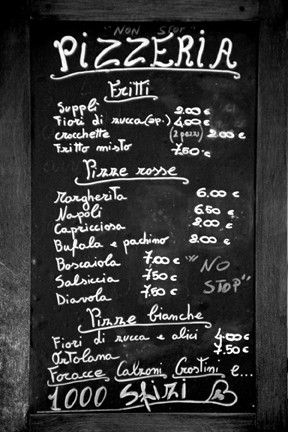 "NON STOP"
PIZZERIA
Fritti
Supplì 2.00 €
Fiori di zucca (op.) 4.00 €
crocchette (2 pezzi) 2.00 €
Fritto misto 7.50 €
Pizze rosse
Margherita 6.00 €
Napoli 6.50 €
Capricciosa 8.00 €
Bufala e pachino 8.00 €
Boscaiola 7.00 €
Salsiccia 7.50 €
Diavola 7.50 €
"NO STOP"
Pizze bianche
Fiori di zucca e alici 8.00 €
Ortolana 7.50 €
Focacce Calzoni Crostini e...
1000 Sfizi